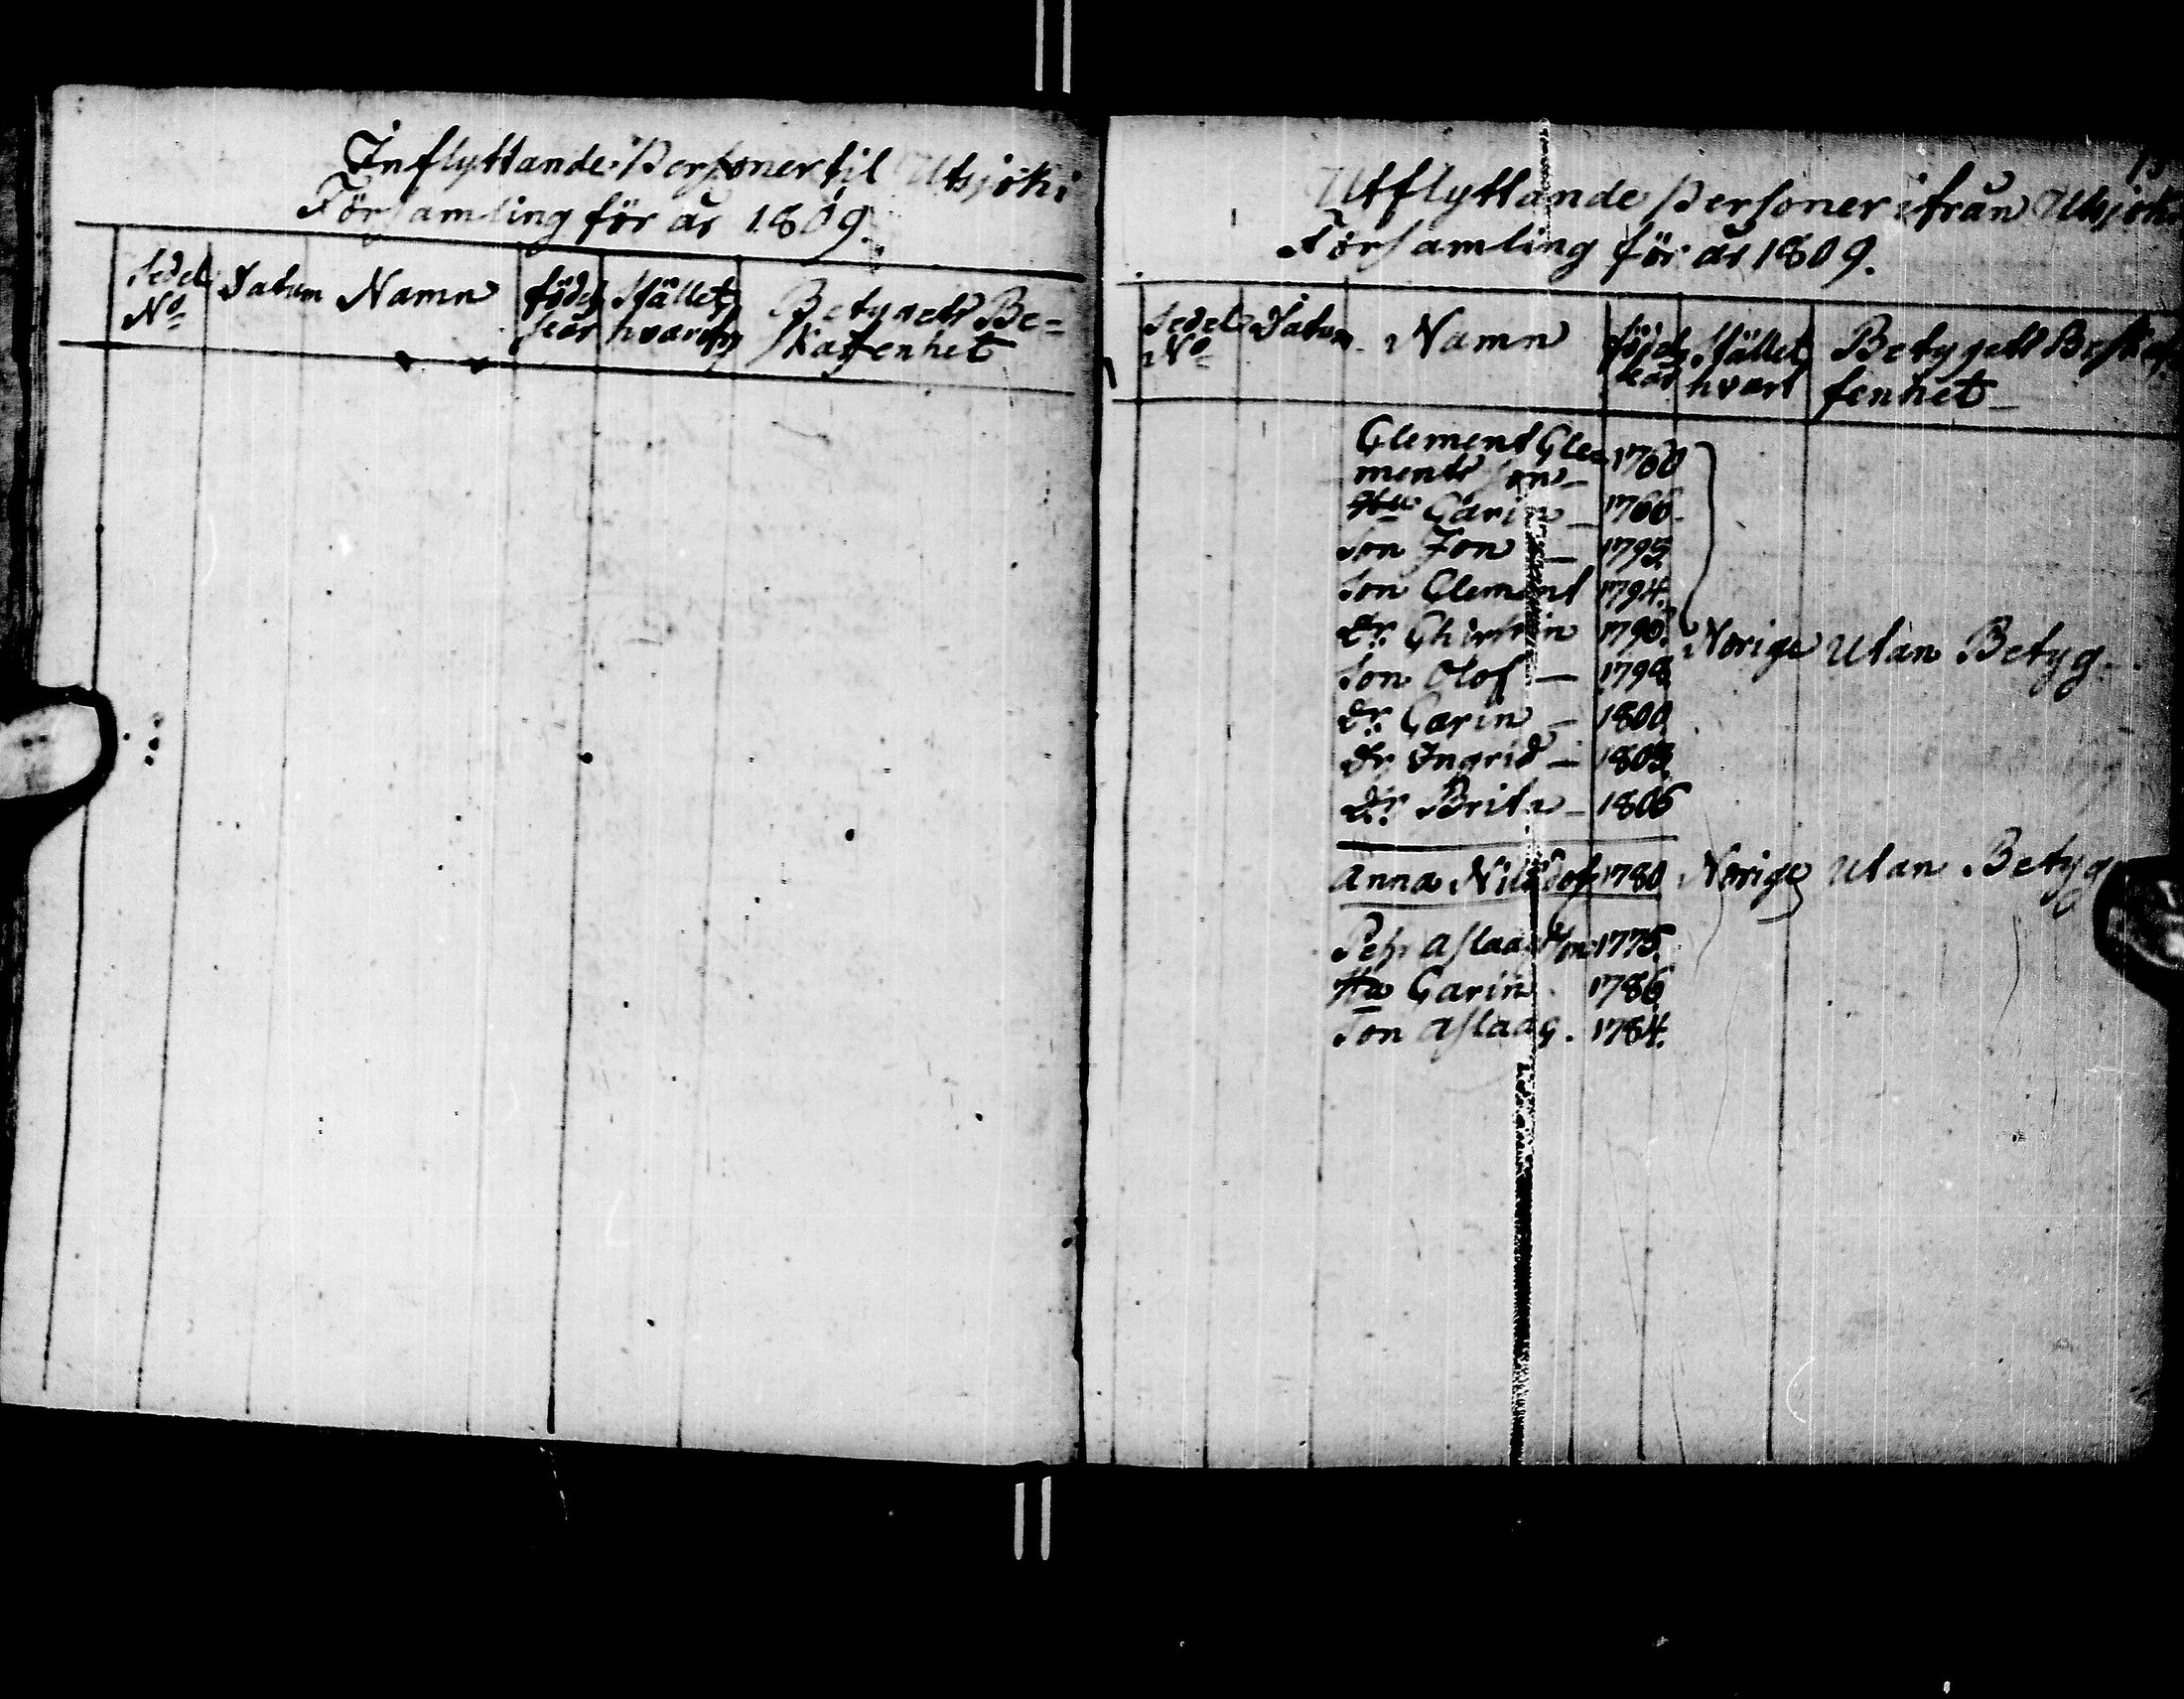 Inflyttande Personer til Utsjoki
Församling för år 1809.
Sedel Datum Namn födel Stället Betygets Be=
No seår hvarifr. skaffenhet
Utflyttande Personer ifrån Utsjoki
Församling för år 1809.
Sedel Datum Namn födel Stället Betygets Beskaf
No seår hvart fenhet
Clement Cle= 1760
mentsson
Hu Carin 1766
Son Jon 1795
Son Clement 1794.
Dr Christin 1790. Norige Utan Betyg.
Son Olof 1798
Dr Carin 1800
Dr Ingrid 1803
Dr Brita 1806
Anna Nilsdotr 1780 Norige Utan Betyg
Pehr Aslaagson 1775.
Hu Carin 1786
Son Aslaag. 1784.